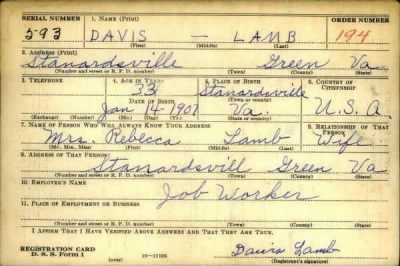 SERIAL NUMBER 1. NAME (Print) ORDER NUMBER
593 DAVIS — LAMB 194
(First) (Middle) (Last)
2. ADDRESS (Print)
Stanardsville Green Va
(Number and street or R. F. D. number) (Town) (County) (State)
3. TELEPHONE 4. AGE IN YEARS 5. PLACE OF BIRTH 6. COUNTRY OF CITIZENSHIP
33 Stanardsville
DATE OF BIRTH (Town or county)
Jan 14 1907 Va. U.S.A.
(Exchange) (Number) (Mo.) (Day) (Yr.) (State or country)
7. NAME OF PERSON WHO WILL ALWAYS KNOW YOUR ADDRESS 8. RELATIONSHIP OF THAT PERSON
Mrs. Rebecca Lamb Wife
(Mr., Mrs., Miss) (First) (Middle) (Last)
9. ADDRESS OF THAT PERSON
Stanardsvill Green Va
(Number and street or R. F. D. number) (Town) (County) (State)
10. EMPLOYER'S NAME
Job Worker
11. PLACE OF EMPLOYMENT OR BUSINESS
(Number and street or R. F. D. number) (Town) (County) (State)
I AFFIRM THAT I HAVE VERIFIED ABOVE ANSWERS AND THAT THEY ARE TRUE.
REGISTRATION CARD
D. S. S. Form 1 Davis Lamb
(Registrant's signature)